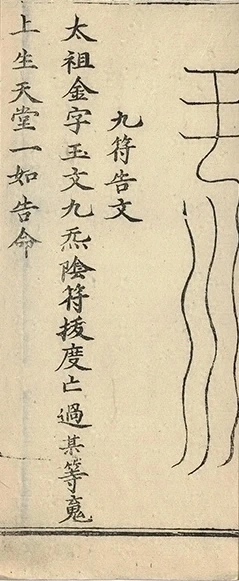 九符告文
太祖金字玉文九炁陰符拔度亡過某等䰟
上生天堂一如告命